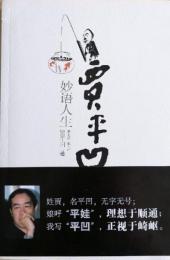 贾平凹
妙语人生
姓贾，名平凹，无字无号；
娘呼“平娃”，理想于顺通；
我写“平凹”，正视于崎岖。